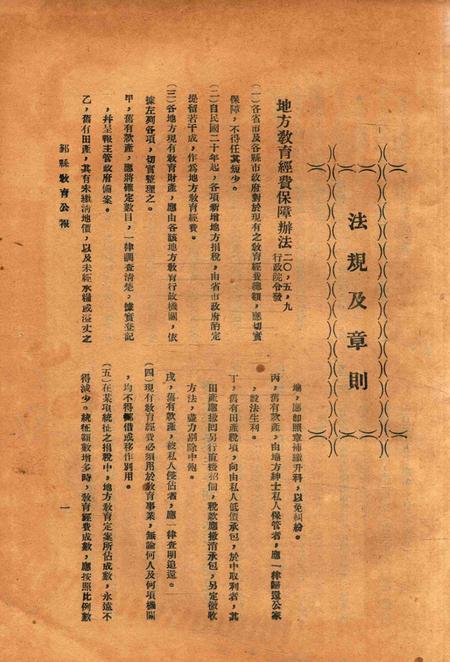 法規及章則
地方教育經費保障辦法 二〇,五,九 行政院令發
(一)各省市及各縣市政府對於現有之教育經費總額,應切實
保障,不得任其短少。
(二)自民國二十年起,各項新增地方捐稅,由省市政府酌定
提留若干成,作為地方教育經費。
(三)各地方現有教育財產,應由各該地方教育行政機關,依
據左列各項,切實整理之。
甲,舊有款產,應將確定數目,一律調查清楚,據實登記
,幷呈報主管政府備案。
乙,舊有田產,其有未繳清地價,以及未經承糧或溢丈之
地,應卽照章補繳升科,以免糾紛。
丙,舊有款產,由地方紳士私人保管者,應一律歸還公家
,設法生利。
丁,舊有田產稅項,向由私人低價承包,於中取利者,其
田產應撤囘另行直接招佃,稅款應撤消承包,另定徵收
方法,盡力剔除中飽。
戊,舊有款產,被私人侵佔者,應一律查明追還。
(四)現有教育經費必須用於教育事業,無論何人及何項機關
,均不得挪借或移作別用。
(五)在某項統征之捐稅中,地方教育定案所佔成數,永遠不
得減少。統征額數增多時,教育經費成數,應按照比例數
縣教育公報
一